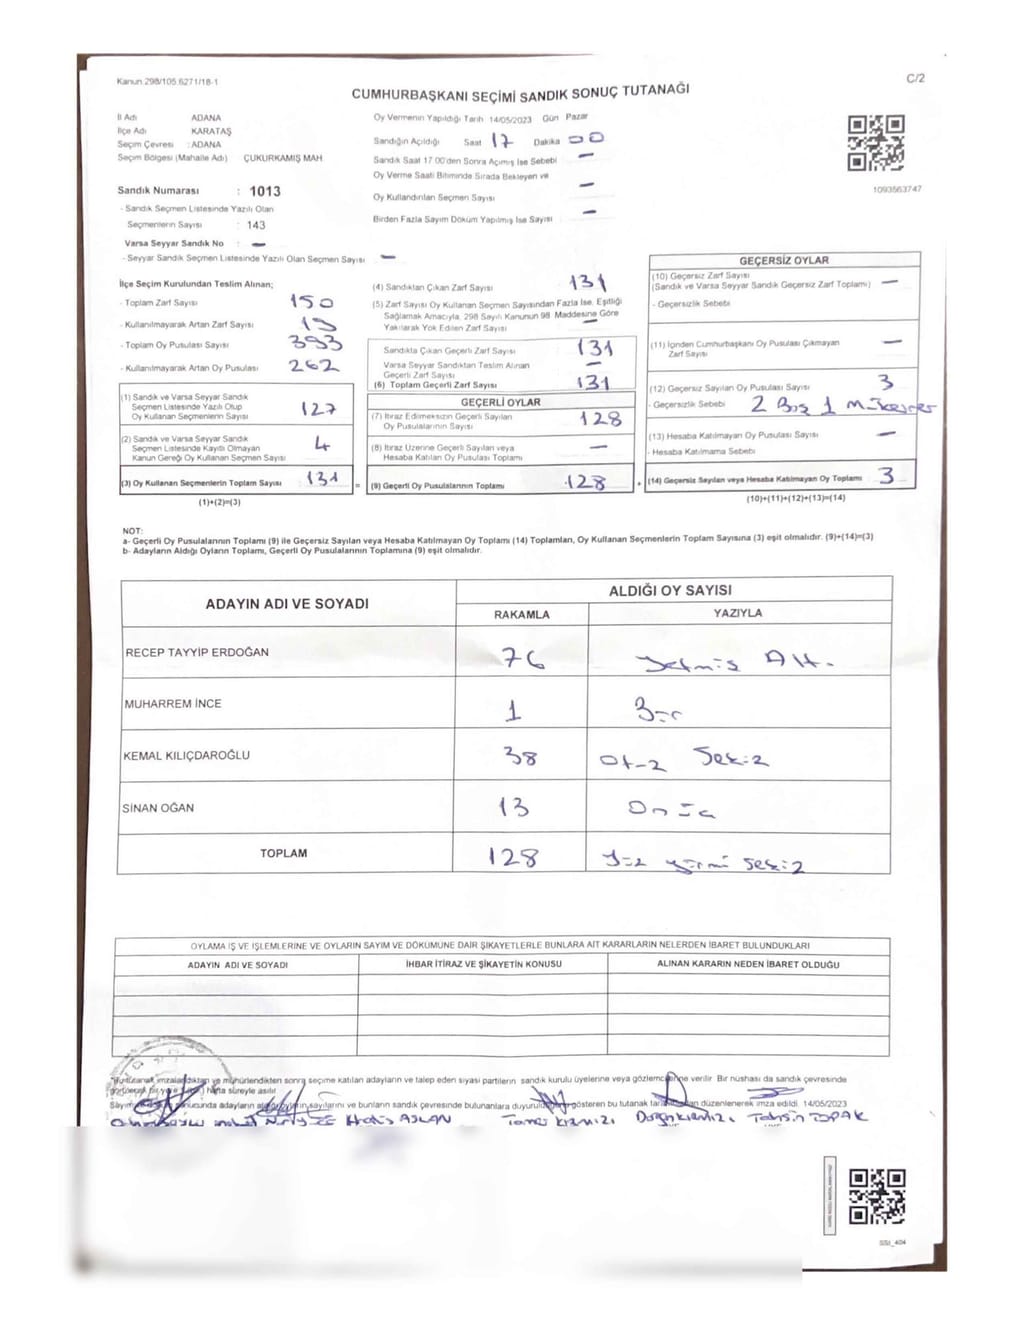 Kanun 298/105.6271/18-1
C/2
CUMHURBAŞKANI SEÇİMİ SANDIK SONUÇ TUTANAĞI
İl Adı ADANA
İlçe Adı KARATAŞ
Seçim Çevresi : ADANA
Seçim Bölgesi (Mahalle Adı) ÇUKURKAMIŞ MAH
Sandık Numarası : 1013
- Sandık Seçmen Listesinde Yazılı Olan
Seçmenlerin Sayısı : 143
Varsa Seyyar Sandık No : —
- Seyyar Sandık Seçmen Listesinde Yazılı Olan Seçmen Sayısı —
Oy Vermenin Yapıldığı Tarih 14/05/2023 Gün Pazar
Sandığın Açıldığı Saat 17 Dakika 00
Sandık Saat 17 00'den Sonra Açımış İse Sebebi —
Oy Verme Saati Bitiminde Sırada Bekleyen ve
Oy Kullandırılan Seçmen Sayısı —
Birden Fazla Sayım Döküm Yapılmış İse Sayısı —
1093563747
İlçe Seçim Kurulundan Teslim Alınan;
- Toplam Zarf Sayısı 150
- Kullanılmayarak Artan Zarf Sayısı 19
- Toplam Oy Pusulası Sayısı 393
- Kullanılmayarak Artan Oy Pusulası 262
(1) Sandık ve Varsa Seyyar Sandık
Seçmen Listesinde Yazılı Olup
Oy Kullanan Seçmenlerin Sayısı 127
(2) Sandık ve Varsa Seyyar Sandık
Seçmen Listesinde Kayıtlı Olmayan
Kanun Gereği Oy Kullanan Seçmen Sayısı 4
(3) Oy Kullanan Seçmenlerin Toplam Sayısı 131 =
(1)+(2)=(3)
(4) Sandıktan Çıkan Zarf Sayısı 131
(5) Zarf Sayısı Oy Kullanan Seçmen Sayısından Fazla İse, Eşitliği
Sağlamak Amacıyla, 298 Sayılı Kanunun 98 Maddesine Göre
Yakılarak Yok Edilen Zarf Sayısı —
Sandıkta Çıkan Geçerli Zarf Sayısı 131
Varsa Seyyar Sandıktan Teslim Alınan
Geçerli Zarf Sayısı —
(6) Toplam Geçerli Zarf Sayısı 131
GEÇERLİ OYLAR
(7) İtiraz Edilmeksizin Geçerli Sayılan
Oy Pusulalarının Sayısı 128
(8) İtiraz Üzerine Geçerli Sayılan veya
Hesaba Katılan Oy Pusulası Toplamı —
(9) Geçerli Oy Pusulalarının Toplamı 128 +
GEÇERSİZ OYLAR
(10) Geçersiz Zarf Sayısı
(Sandık ve Varsa Seyyar Sandık Geçersiz Zarf Toplamı) —
- Geçersizlik Sebebi
(11) İçinden Cumhurbaşkanı Oy Pusulası Çıkmayan
Zarf Sayısı —
(12) Geçersiz Sayılan Oy Pusulası Sayısı 3
- Geçersizlik Sebebi 2 Boş 1 Mükerrer
(13) Hesaba Katılmayan Oy Pusulası Sayısı —
- Hesaba Katılmama Sebebi
(14) Geçersiz Sayılan veya Hesaba Katılmayan Oy Toplamı 3
(10)+(11)+(12)+(13)=(14)
NOT:
a- Geçerli Oy Pusulalarının Toplamı (9) ile Geçersiz Sayılan veya Hesaba Katılmayan Oy Toplamı (14) Toplamları, Oy Kullanan Seçmenlerin Toplam Sayısına (3) eşit olmalıdır. (9)+(14)=(3)
b- Adayların Aldığı Oyların Toplamı, Geçerli Oy Pusulalarının Toplamına (9) eşit olmalıdır.
ADAYIN ADI VE SOYADI ALDIĞI OY SAYISI
RAKAMLA YAZIYLA
RECEP TAYYİP ERDOĞAN 76 Yetmiş Altı
MUHARREM İNCE 1 Bir
KEMAL KILIÇDAROĞLU 38 Otuz Sekiz
SİNAN OĞAN 13 Onüç
TOPLAM 128 Yüz yirmi sekiz
OYLAMA İŞ VE İŞLEMLERİNE VE OYLARIN SAYIM VE DÖKÜMÜNE DAİR ŞİKAYETLERLE BUNLARA AİT KARARLARIN NELERDEN İBARET BULUNDUKLARI
ADAYIN ADI VE SOYADI İHBAR İTİRAZ VE ŞİKAYETİN KONUSU ALINAN KARARIN NEDEN İBARET OLDUĞU
*Bu tutanak imzalandıktan ve mühürlendikten sonra seçime katılan adayların ve talep eden siyasi partilerin sandık kurulu üyelerine veya gözlemcilerine verilir. Bir nüshası da sandık çevresinde
hafta süreyle asılır
Sayım sonucunda adayların aldığı oyların sayılarını ve bunların sandık çevresinde bulunanlara duyurulduğunu gösteren bu tutanak tarafımızdan düzenlenerek imza edildi. 14/05/2023
Halis ASLAN Tamer KIRMIZI Doğan KIRMIZI Tahsin IPAK
SSt_404